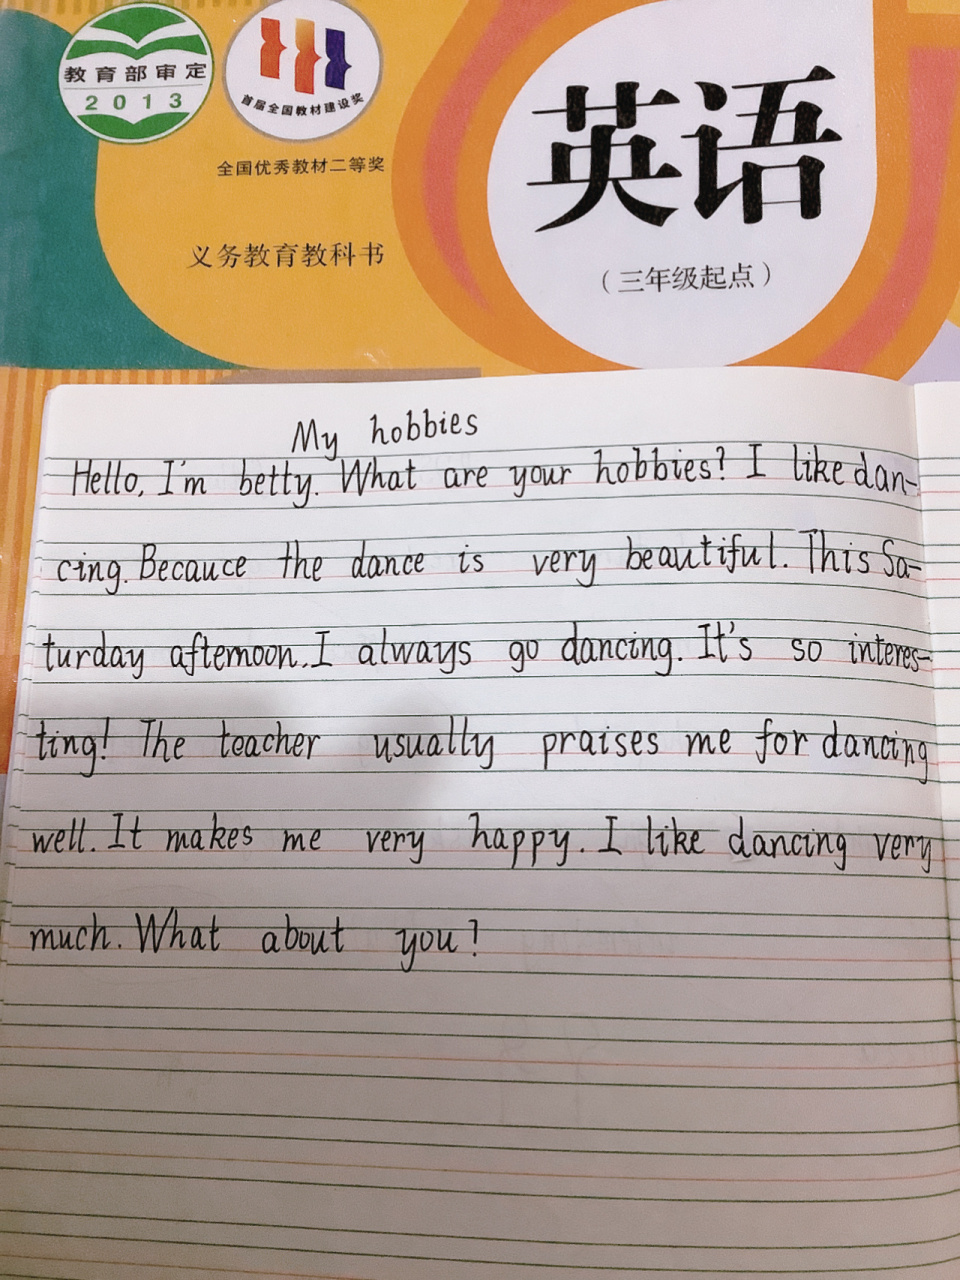 教育部审定
2013
首届全国教材建设奖
全国优秀教材二等奖
义务教育教科书
英语
（三年级起点）
My hobbies
Hello, I'm betty. What are your hobbies? I like dan-
cing. Becauce the dance is very beautiful. This Sa-
turday afternoon, I always go dancing. It's so interes-
ting! The teacher usually praises me for dancing
well. It makes me very happy. I like dancing very
much. What about you?